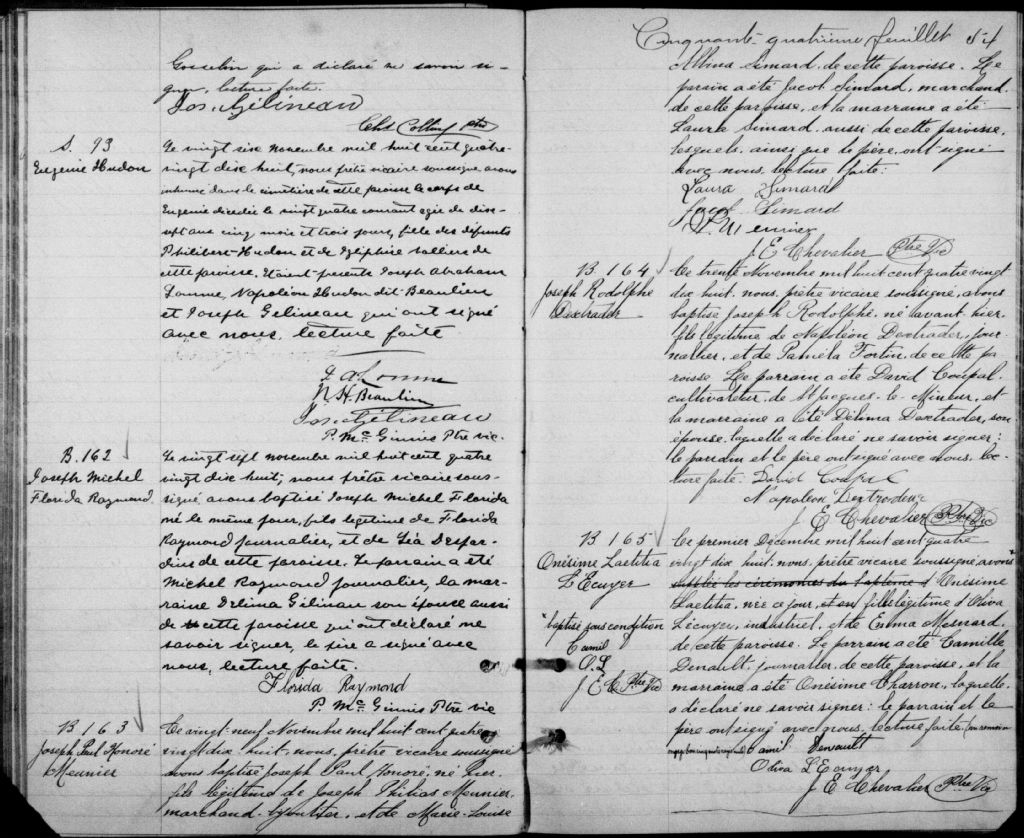 Gosselin qui a déclaré ne savoir si-
gner, lecture faite.
Jos. Gélineau
Chs Collin ptre
S. 93
Eugenie Hudon
Le vingt six novembre mil huit cent quatre-
vingt dix huit, nous prêtre vicaire soussigné avons
inhumé dans le cimetière de cette paroisse le corps de
Eugenie décédée le vingt quatre courant agée de dix-
sept ans cinq mois et trois jours, fille des défunts
Philibert Hudon et de
cette paroisse. Etaient présents Joseph Abraham
Lomme, Napoléon Hudon dit Beaulieu
et Joseph Gélineau qui ont signé
avec nous, lecture faite
J. A. Lomme
N. H. Beaulieu
Jos. Gélineau
P. Mc Ginnis Ptre vic.
B. 162
Joseph Michel
Florida Raymond
Le vingt sept novembre mil huit cent quatre
vingt dix huit, nous prêtre vicaire sous-
signé avons baptisé Joseph Michel Florida
né le même jour, fils légitime de Florida
Raymond journalier, et de Léa Desjar-
dins de cette paroisse. Le parrain a été
Michel Raymond journalier, la mar-
raine Delima Gélineau son épouse aussi
de cette paroisse qui ont déclaré ne
savoir signer, le père a signé avec
nous, lecture faite.
Florida Raymond
P. Mc Ginnis Ptre vic
B 163
Joseph Paul Honoré
Meunier
Ce vingt-neuf Novembre mil huit cent quatre
vingt dix huit, nous, prêtre vicaire soussigné
avons baptisé Joseph Paul Honoré, né hier
fils légitime de Joseph Philias Meunier,
marchand-bijoutier, et de Marie-Louise
Cinquante-quatrième feuillet 54
Albina Simard, de cette paroisse. Le
parain a été Jacob Simard, marchand,
de cette paroisse, et la marraine a été
Laura Simard, aussi de cette paroisse,
lesquels, ainsi que le père, ont signé
avec nous, lecture faite:
Laura Simard
Jacob Simard
P. Meunier
J. E Chevalier Ptre Vic
B. 164
Joseph Rodolphe
Dextrader
Ce trente Novembre mil huit cent quatre vingt
dix huit, nous, prêtre vicaire soussigné, avons
baptisé Joseph Rodolphe, né avant hier,
fils légitime de Napoléon Dextrader, jour-
nalier, et de Paméla Fortin, de cette pa-
roisse. Le parrain a été David Coupal,
cultivateur, de St Jacques-le-Mineur, et
la marraine a été Délima Dextrader, son
épouse, laquelle a déclaré ne savoir signer:
le parrain et le père ont signé avec nous, lec-
ture faite. David Coupal
Napoleon Dextradeur
J. E Chevalier Ptre Vic
B 165
Onésime Laetitia
L'Ecuyer
"baptisé sous condition
Camil
O. L
J E C Ptre Vic
Ce premier Décembre mil huit cent quatre
vingt dix huit, nous, prêtre vicaire soussigné, avons
suppléé les cérémonies du baptême à Onésime
Laetitia, née ce jour, et en fille légitime d'Oliva
L'écuyer, industriel, et de Emma Mesnard,
de cette paroisse. Le parrain a été Camille
Denault, journalier, de cette paroisse, et la
marraine a été Onésime Charron, laquelle
a déclaré ne savoir signer: le parrain et le
père ont signé avec nous, lecture faite.
Camil Denault
Oliva L'Ecuyer
J E Chevalier Ptre Vic